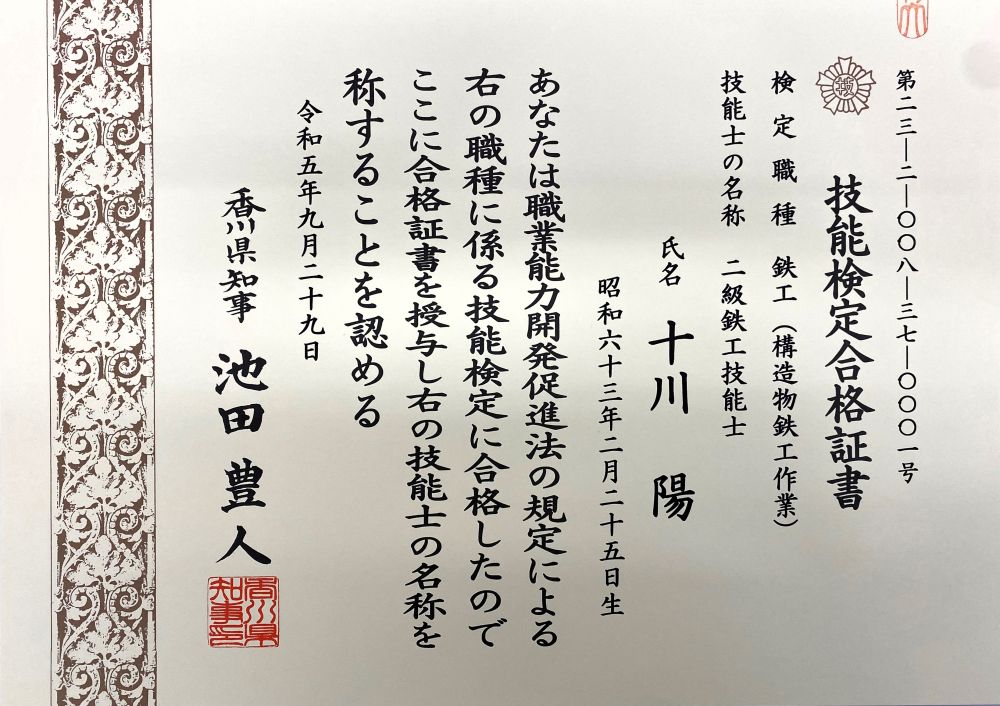 第二三―二―〇〇八―三七―〇〇〇一号
技
技能検定合格証書
検定職種 鉄工（構造物鉄工作業）
技能士の名称 二級鉄工技能士
氏名 十川 陽
昭和六十三年二月二十五日生
あなたは職業能力開発促進法の規定による
右の職種に係る技能検定に合格したので
ここに合格証書を授与し右の技能士の名称を
称することを認める
令和五年九月二十九日
香川県知事 池田豊人
香川県
知事印